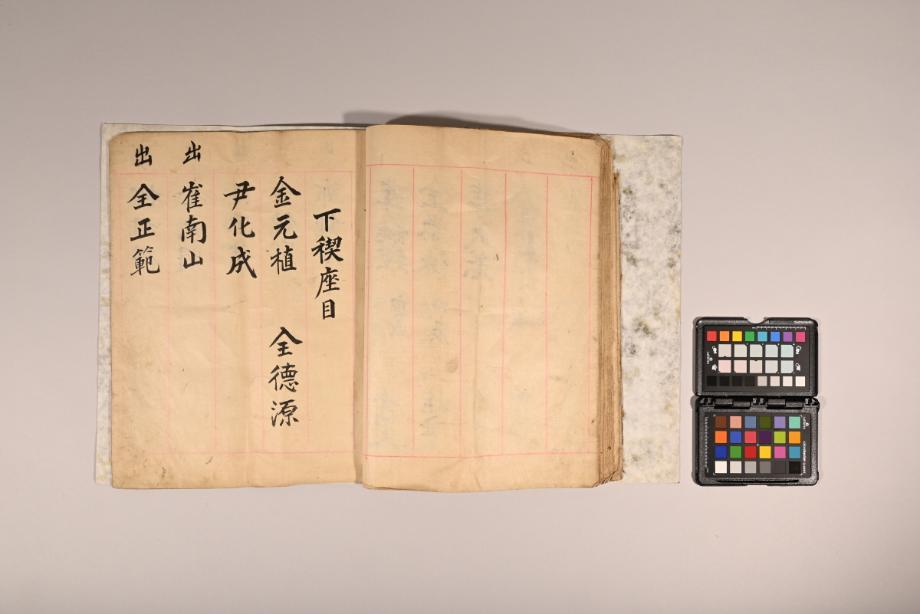 下稧座目
金元植 全德源
尹化成
出 崔南山
出 全正範